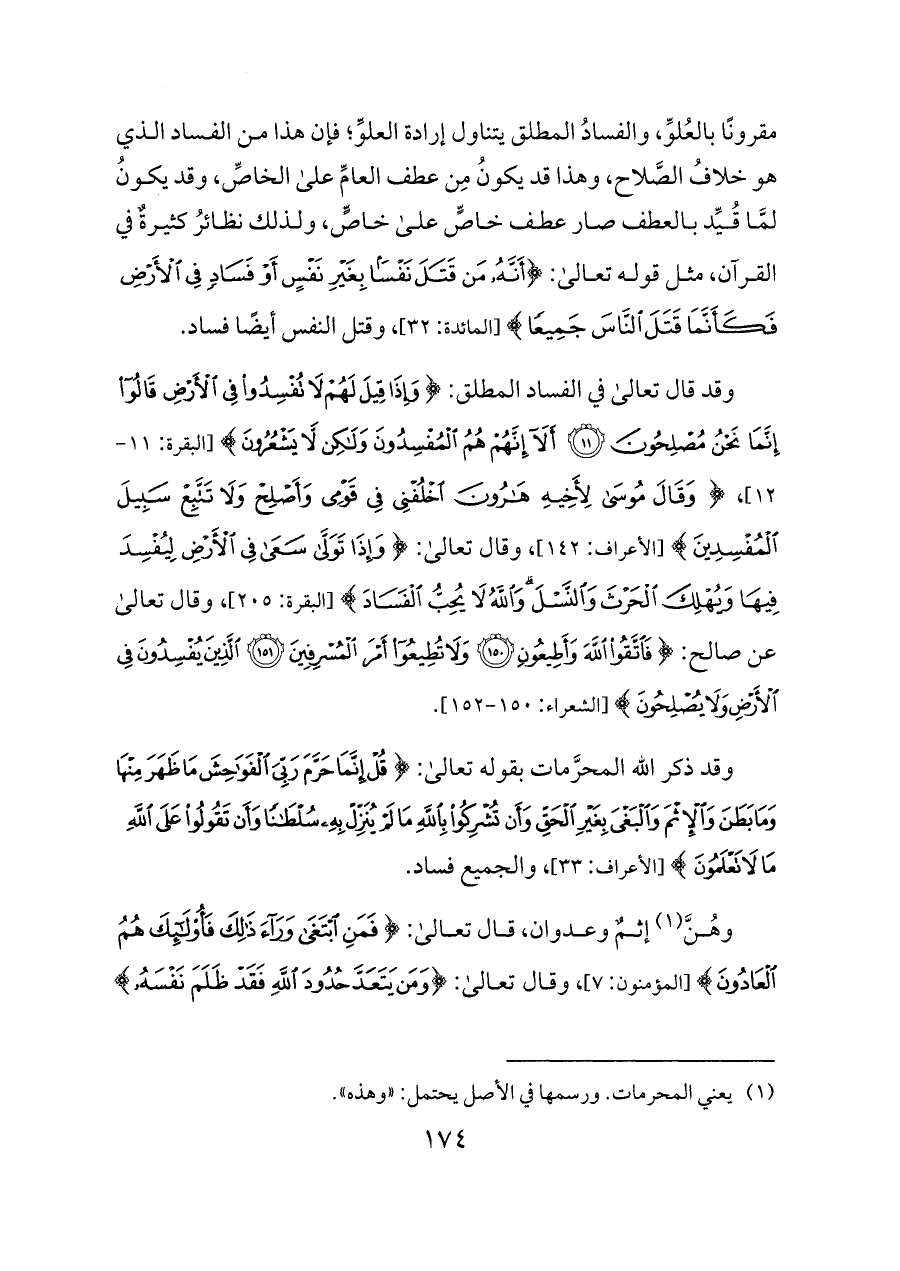 مقرونًا بالعُلوِّ، والفسادُ المطلق يتناول إرادة العلوِّ؛ فإن هذا من الفساد الذي
هو خلافُ الصَّلاح، وهذا قد يكونُ مِن عطف العامِّ علىٰ الخاصِّ، وقد يكونُ
لمَّا قُيِّد بالعطف صار عطف خاصٍّ علىٰ خاصٍّ، ولذلك نظائرُ كثيرةٌ في
القرآن، مثل قوله تعالىٰ: ﴿أَنَّهُۥ مَن قَتَلَ نَفْسًۢا بِغَيْرِ نَفْسٍ أَوْ فَسَادٍ فِى ٱلْأَرْضِ
فَكَأَنَّمَا قَتَلَ ٱلنَّاسَ جَمِيعًا﴾ [المائدة: ٣٢]، وقتل النفس أيضًا فساد.
وقد قال تعالىٰ في الفساد المطلق: ﴿وَإِذَا قِيلَ لَهُمْ لَا تُفْسِدُوا۟ فِى ٱلْأَرْضِ قَالُوٓا۟
إِنَّمَا نَحْنُ مُصْلِحُونَ ۝١١ أَلَآ إِنَّهُمْ هُمُ ٱلْمُفْسِدُونَ وَلَـٰكِن لَّا يَشْعُرُونَ﴾ [البقرة: ١١-
١٢]، ﴿وَقَالَ مُوسَىٰ لِأَخِيهِ هَـٰرُونَ ٱخْلُفْنِى فِى قَوْمِى وَأَصْلِحْ وَلَا تَتَّبِعْ سَبِيلَ
ٱلْمُفْسِدِينَ﴾ [الأعراف: ١٤٢]، وقال تعالىٰ: ﴿وَإِذَا تَوَلَّىٰ سَعَىٰ فِى ٱلْأَرْضِ لِيُفْسِدَ
فِيهَا وَيُهْلِكَ ٱلْحَرْثَ وَٱلنَّسْلَ ۗ وَٱللَّهُ لَا يُحِبُّ ٱلْفَسَادَ﴾ [البقرة: ٢٠٥]، وقال تعالىٰ
عن صالح: ﴿فَٱتَّقُوا۟ ٱللَّهَ وَأَطِيعُونِ ۝١٥٠ وَلَا تُطِيعُوٓا۟ أَمْرَ ٱلْمُسْرِفِينَ ۝١٥١ ٱلَّذِينَ يُفْسِدُونَ فِى
ٱلْأَرْضِ وَلَا يُصْلِحُونَ﴾ [الشعراء: ١٥٠-١٥٢].
وقد ذكر الله المحرَّمات بقوله تعالىٰ: ﴿قُلْ إِنَّمَا حَرَّمَ رَبِّىَ ٱلْفَوَٰحِشَ مَا ظَهَرَ مِنْهَا
وَمَا بَطَنَ وَٱلْإِثْمَ وَٱلْبَغْىَ بِغَيْرِ ٱلْحَقِّ وَأَن تُشْرِكُوا۟ بِٱللَّهِ مَا لَمْ يُنَزِّلْ بِهِۦ سُلْطَـٰنًا وَأَن تَقُولُوا۟ عَلَى ٱللَّهِ
مَا لَا تَعْلَمُونَ﴾ [الأعراف: ٣٣]، والجميع فساد.
وهُنَّ(١) إثمٌ وعدوان، قال تعالىٰ: ﴿فَمَنِ ٱبْتَغَىٰ وَرَآءَ ذَٰلِكَ فَأُو۟لَـٰٓئِكَ هُمُ
ٱلْعَادُونَ﴾ [المؤمنون: ٧]، وقال تعالىٰ: ﴿وَمَن يَتَعَدَّ حُدُودَ ٱللَّهِ فَقَدْ ظَلَمَ نَفْسَهُۥ﴾
(١) يعني المحرمات. ورسمها في الأصل يحتمل: «وهذه».
١٧٤